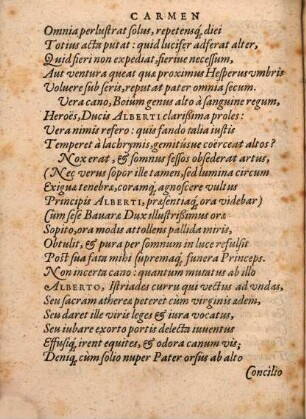 CARMEN
Omnia perlustrat solus, repetensq́, diei
Totius acta putat: quid lucifer adferat alter,
Quid fieri non expediat, fieriue necessum,
Aut ventura queat qua proximus Hesperus vmbris
Voluere sub seris, reputat pater omnia secum.
Vera cano, Boiûm genus alto à sanguine regum,
Heroës, Ducis ALBERTI clarissima proles:
Vera nimis refero: quis fando talia iustis
Temperet à lachrymis, gemitúsue coërceat altos?
Nox erat, & somnus fessos obsederat artus,
(Nec verus sopor ille tamen, sed lumina circum
Exigua tenebræ, coramq́, agnoscere vultus
Principis ALBERTI, præsentiaq́, ora videbar)
Cùm sese Bauaræ Dux illustrissimus oræ
Sopito, ora modis attollens pallida miris,
Obtulit, & pura per somnum in luce refulsit
Post sua fata mihi supremaq́, funera Princeps.
Non incerta cano: quantum mutatus ab illo
ALBERTO, Istriades curru qui vectus ad vndas,
Seu sacram atherea peteret cùm virginis ædem,
Seu daret ille viris leges & iura vocatus,
Seu iubare exorto portis delecta iuuentus
Effusiq́, irent equites, & odora canum vis;
Deniq, cùm solio nuper Pater orsus ab alto
Concilio